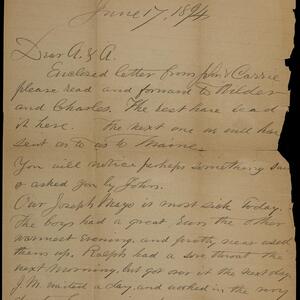 June 17, 1894
Dear A. & A.
Enclosed letter from John & Carrie
please read and forward to
and Charles. The rest have read
it here. The next one we will have
sent on to us to Maine.
You will notice perhaps something
asked you by John.
Our Joseph Mayo is most sick today.
The boys had a great run the other
warmest evening, and pretty near used
them up. Ralph had a sore throat the
next morning, but got over it the next day.
J. M. waited a day, and worked in the very